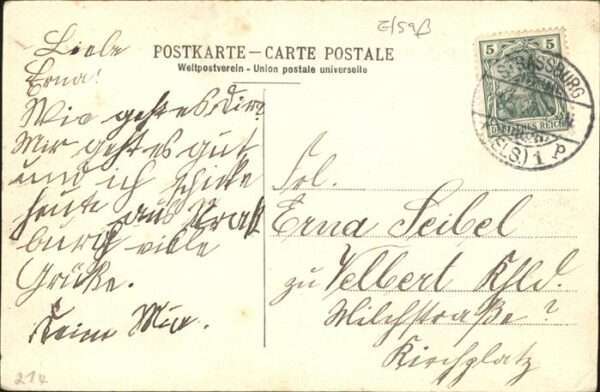 E/59β
POSTKARTE – CARTE POSTALE
Weltpostverein - Union postale universelle
5 5
DEUTSCHES REICH
STRASSBURG
(ELS) 1 P
Liebe
Erna!
Wie geht es Dir?
Mir geht es gut
und ich schicke
heute aus Straß
burg viele
Grüße.
Deine
Frl.
Erna Seibel
zu Velbert Rhld.
Milchstraße ?
Kirchplatz